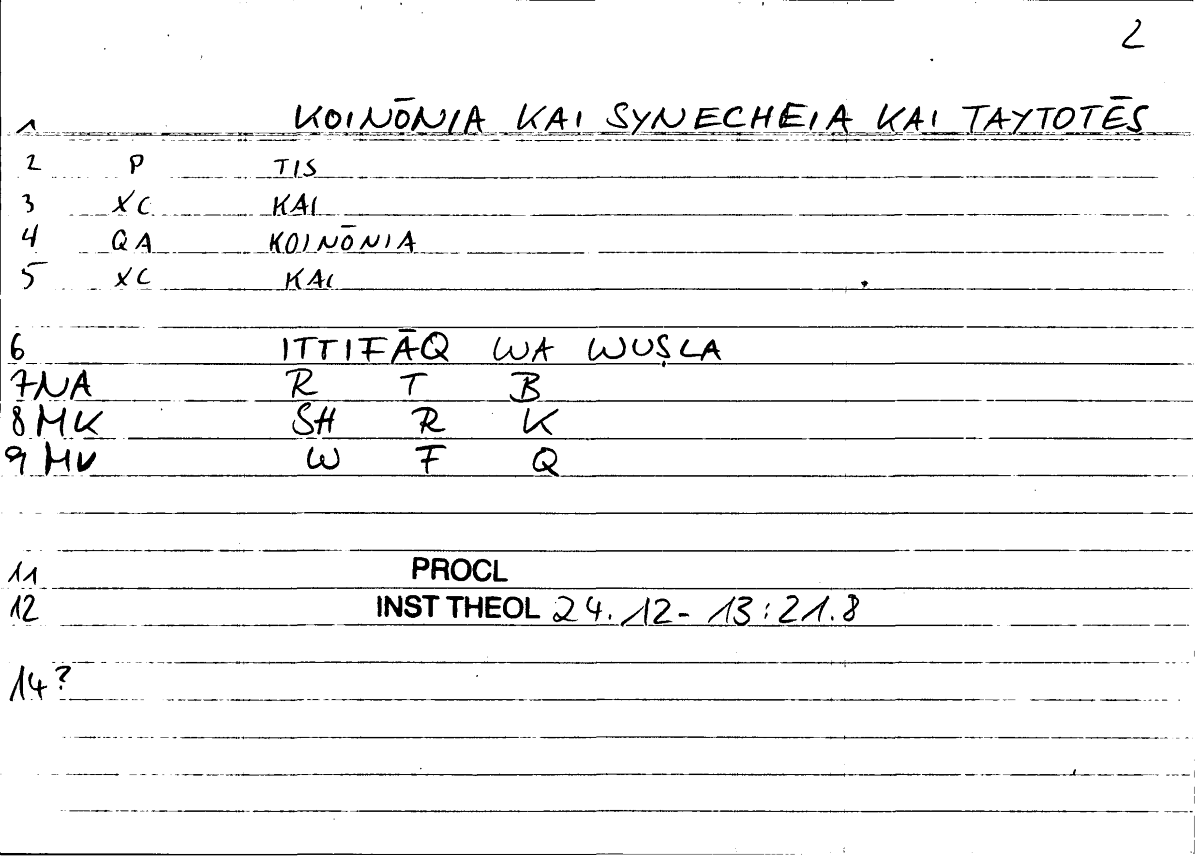 2
1 KOINŌNIA KAI SYNECHEIA KAI TAYTOTĒS
2 P TIS
3 XC KAI
4 QA KOINŌNIA
5 XC KAI
6 ITTIFĀQ WA WUṢLA
7 NA R T B
8 MK SH R K
9 MV W F Q
11 PROCL
12 INST THEOL 24.12-13:21.8
14?